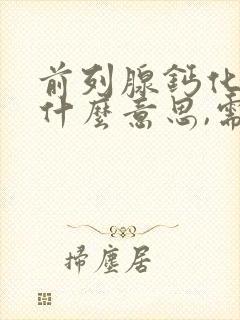 前列腺鈣化
什麼意思,需
掃塵居